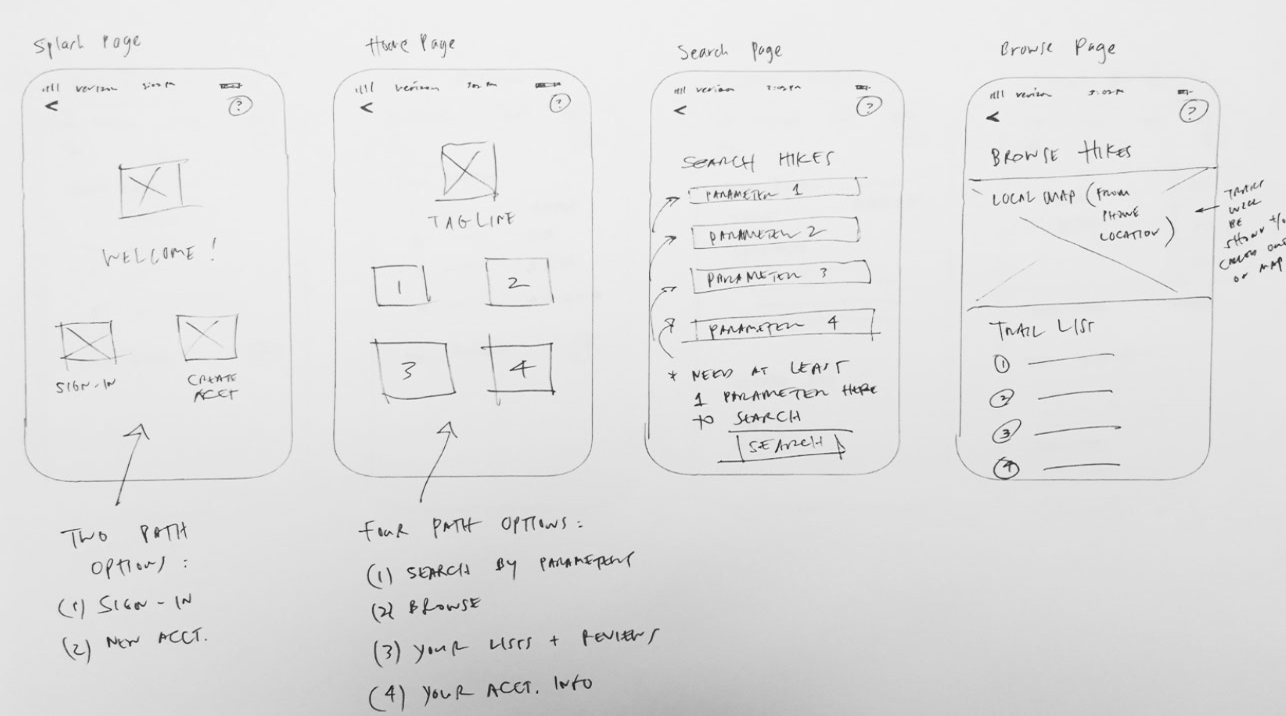 Splash Page
verizon
<
?
WELCOME!
SIGN-IN
CREATE
ACCT
TWO PATH
OPTIONS:
(1) SIGN-IN
(2) NEW ACCT.
Home Page
verizon
<
?
TAGLINE
1
2
3
4
FOUR PATH OPTIONS:
(1) SEARCH BY PARAMETERS
(2) BROWSE
(3) YOUR LISTS + REVIEWS
(4) YOUR ACCT. INFO
Search Page
verizon
<
?
SEARCH HIKES
PARAMETER 1
PARAMETER 2
PARAMETER 3
PARAMETER 4
* NEED AT LEAST
1 PARAMETER HERE
TO SEARCH
SEARCH
Browse Page
verizon
<
?
BROWSE HIKES
LOCAL MAP (FROM
PHONE
LOCATION)
TRAILS
WILL
BE
SHOWN
CALLED OUT
ON MAP
TRAIL LIST
1
2
3
4